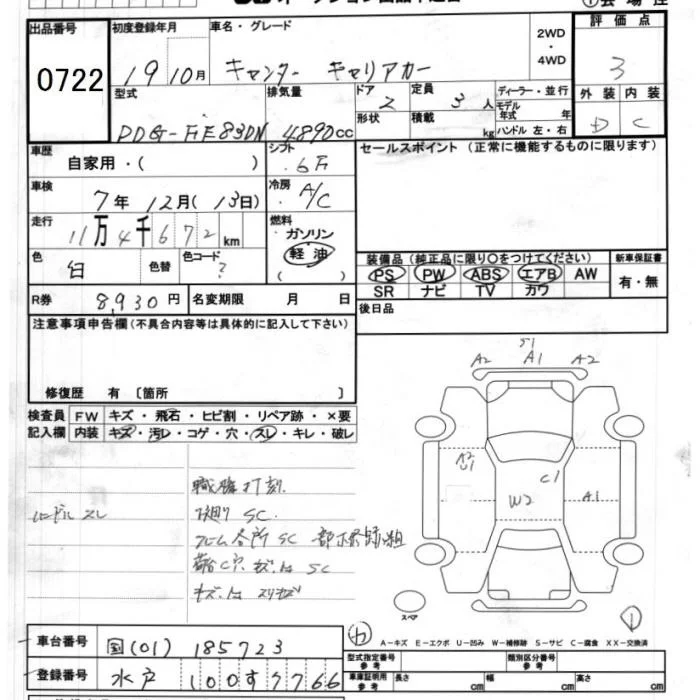 出品番号
0722
初度登録年月
19 10月
車名・グレード
キャンター キャリアカー
2WD
・
4WD
評価点
3
型式
PDG-FE83DN
排気量
4890cc
ドア
2
形状
定員
3人
積載
kg
ディーラー・並行
モデル年式 年
ハンドル 左・右
外装 内装
D C
車歴
自家用・( )
シフト
6F
セールスポイント (正常に機能するものに限ります)
車検
7年 12月(13日)
冷房
A/C
走行
11万4千672km
燃料
ガソリン
軽油
( )
色
白
色替
色コード
?
装備品 (純正品に限り○をつけてください)
PS PW ABS エアB AW
SR ナビ TV カワ
新車保証書
有・無
R券 8,930円
名変期限 月 日
後日品
注意事項申告欄(不具合内容等は具体的に記入して下さい)
修復歴 有 〔箇所 〕
検査員
記入欄
FW キズ・飛石・ヒビ割・リペア跡・×要
内装 キズ・汚レ・コゲ・穴・スレ・キレ・破レ
ハンドル スレ
職勝打刻
下廻り SC
フレーム各所 SC
キズ、凹 SC
キズ、凹
S1
A2 A1 A2
A2
U1
C1
W2
A1
スペア
A-キズ E-エクボ U-凹み W-補修跡 S-サビ C-腐食 XX-交換済
車台番号
国(01) 185723
登録番号
水戸 100す7766
型式指定番号
参考
類別区分番号
参考
車庫証明用
参考
長さ cm
幅 cm
高さ cm